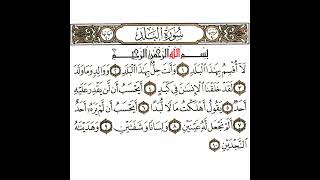 سُورَةُ الْبَلَدِ
بِسْمِ اللَّهِ الرَّحْمَٰنِ الرَّحِيمِ
لَا أُقْسِمُ بِهَٰذَا الْبَلَدِ ١ وَأَنتَ حِلٌّ بِهَٰذَا الْبَلَدِ ٢ وَوَالِدٍ وَمَا وَلَدَ
٣ لَقَدْ خَلَقْنَا الْإِنسَٰنَ فِي كَبَدٍ ٤ أَيَحْسَبُ أَن لَّن يَقْدِرَ عَلَيْهِ
أَحَدٌ ٥ يَقُولُ أَهْلَكْتُ مَالًا لُّبَدًا ٦ أَيَحْسَبُ أَن لَّمْ يَرَهُ أَحَدٌ
٧ أَلَمْ نَجْعَل لَّهُ عَيْنَيْنِ ٨ وَلِسَانًا وَشَفَتَيْنِ ٩ وَهَدَيْنَٰهُ
النَّجْدَيْنِ ١٠